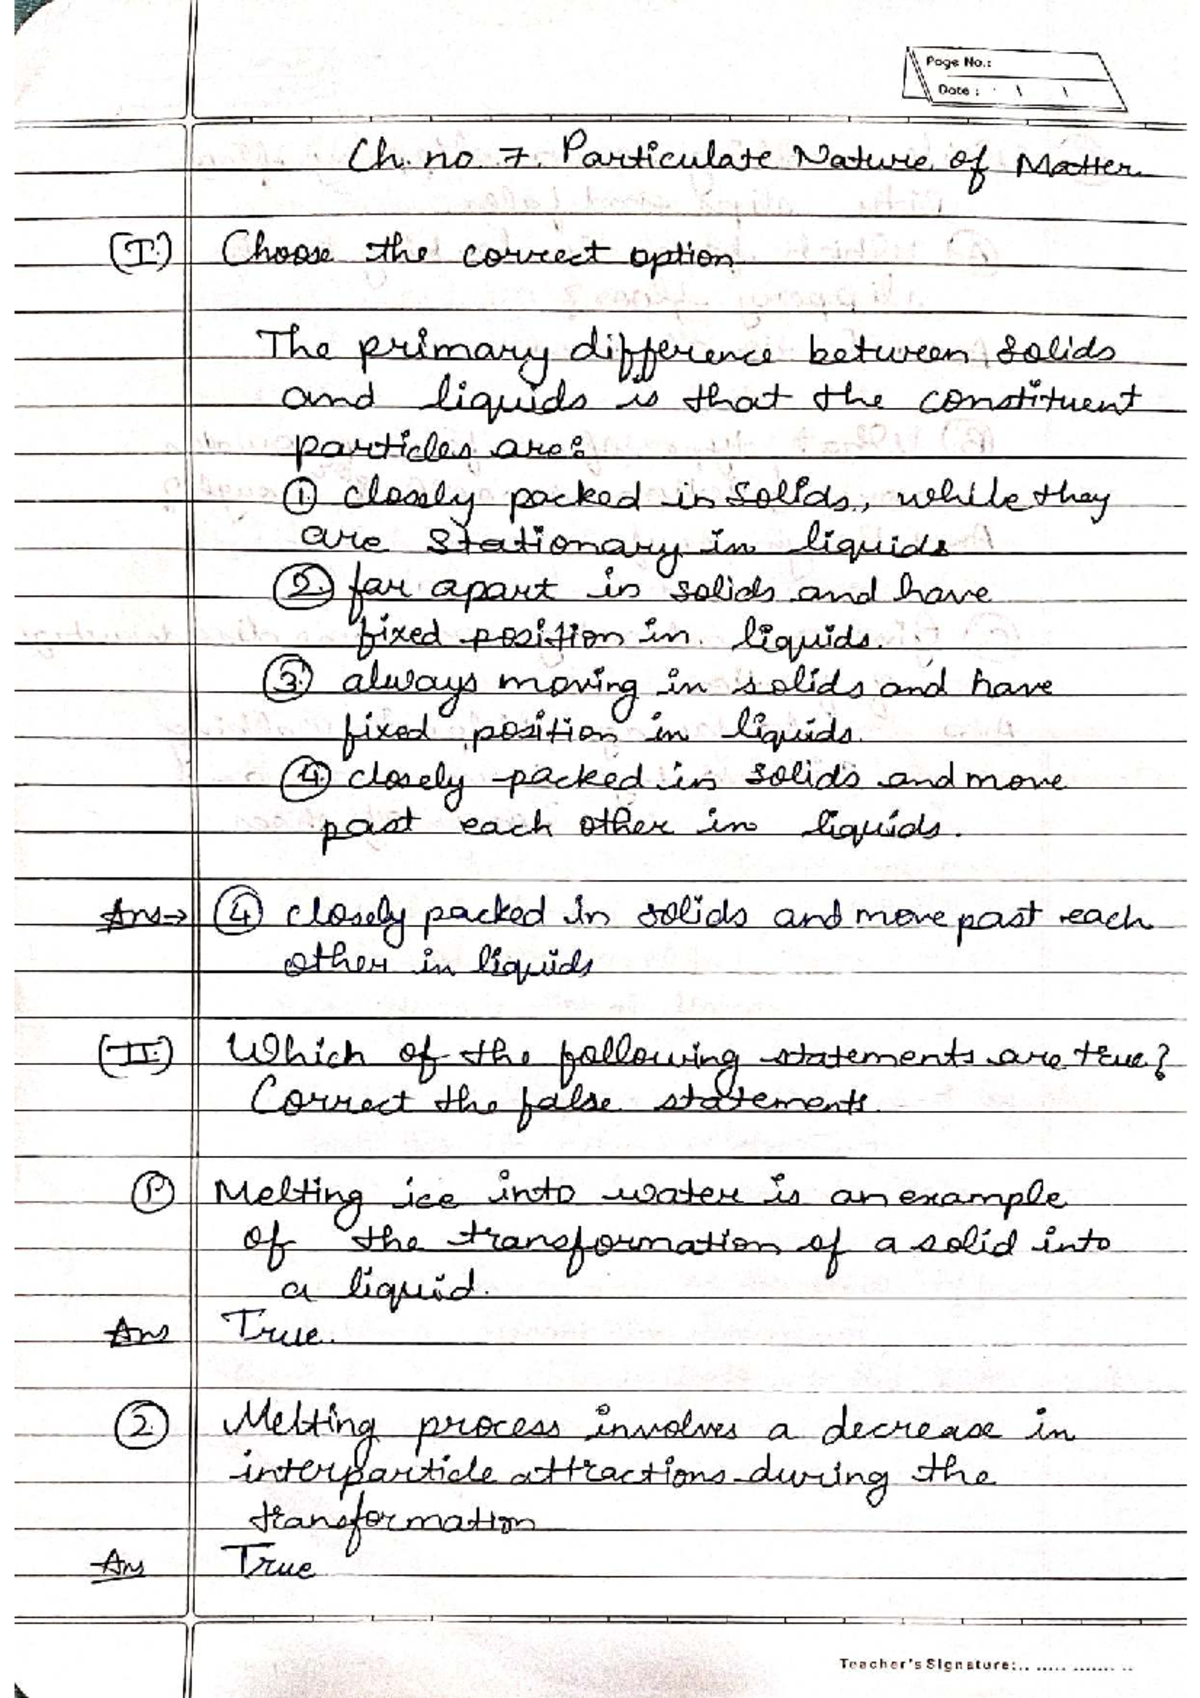 Page No.:
Date :
Ch. no. 7. Particulate Nature of Matter
(I.) Choose the correct option
The primary difference between solids
and liquids is that the constituent
particles are:
① closely packed in solids, while they
are stationary in liquids
② far apart in solids and have
fixed position in liquids.
③ always moving in solids and have
fixed position in liquids.
④ closely packed in solids and move
past each other in liquids.
Ans→ ④ closely packed in solids and move past each
other in liquids
(II.) Which of the following statements are true?
Correct the false statements.
① Melting ice into water is an example
of the transformation of a solid into
a liquid.
Ans True.
② Melting process involves a decrease in
interparticle attractions during the
transformation
Ans True
Teacher's Signature: